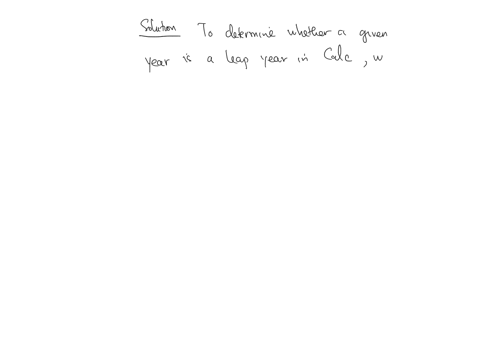 Solution To determine whether a given
year is a leap year in Calc, w